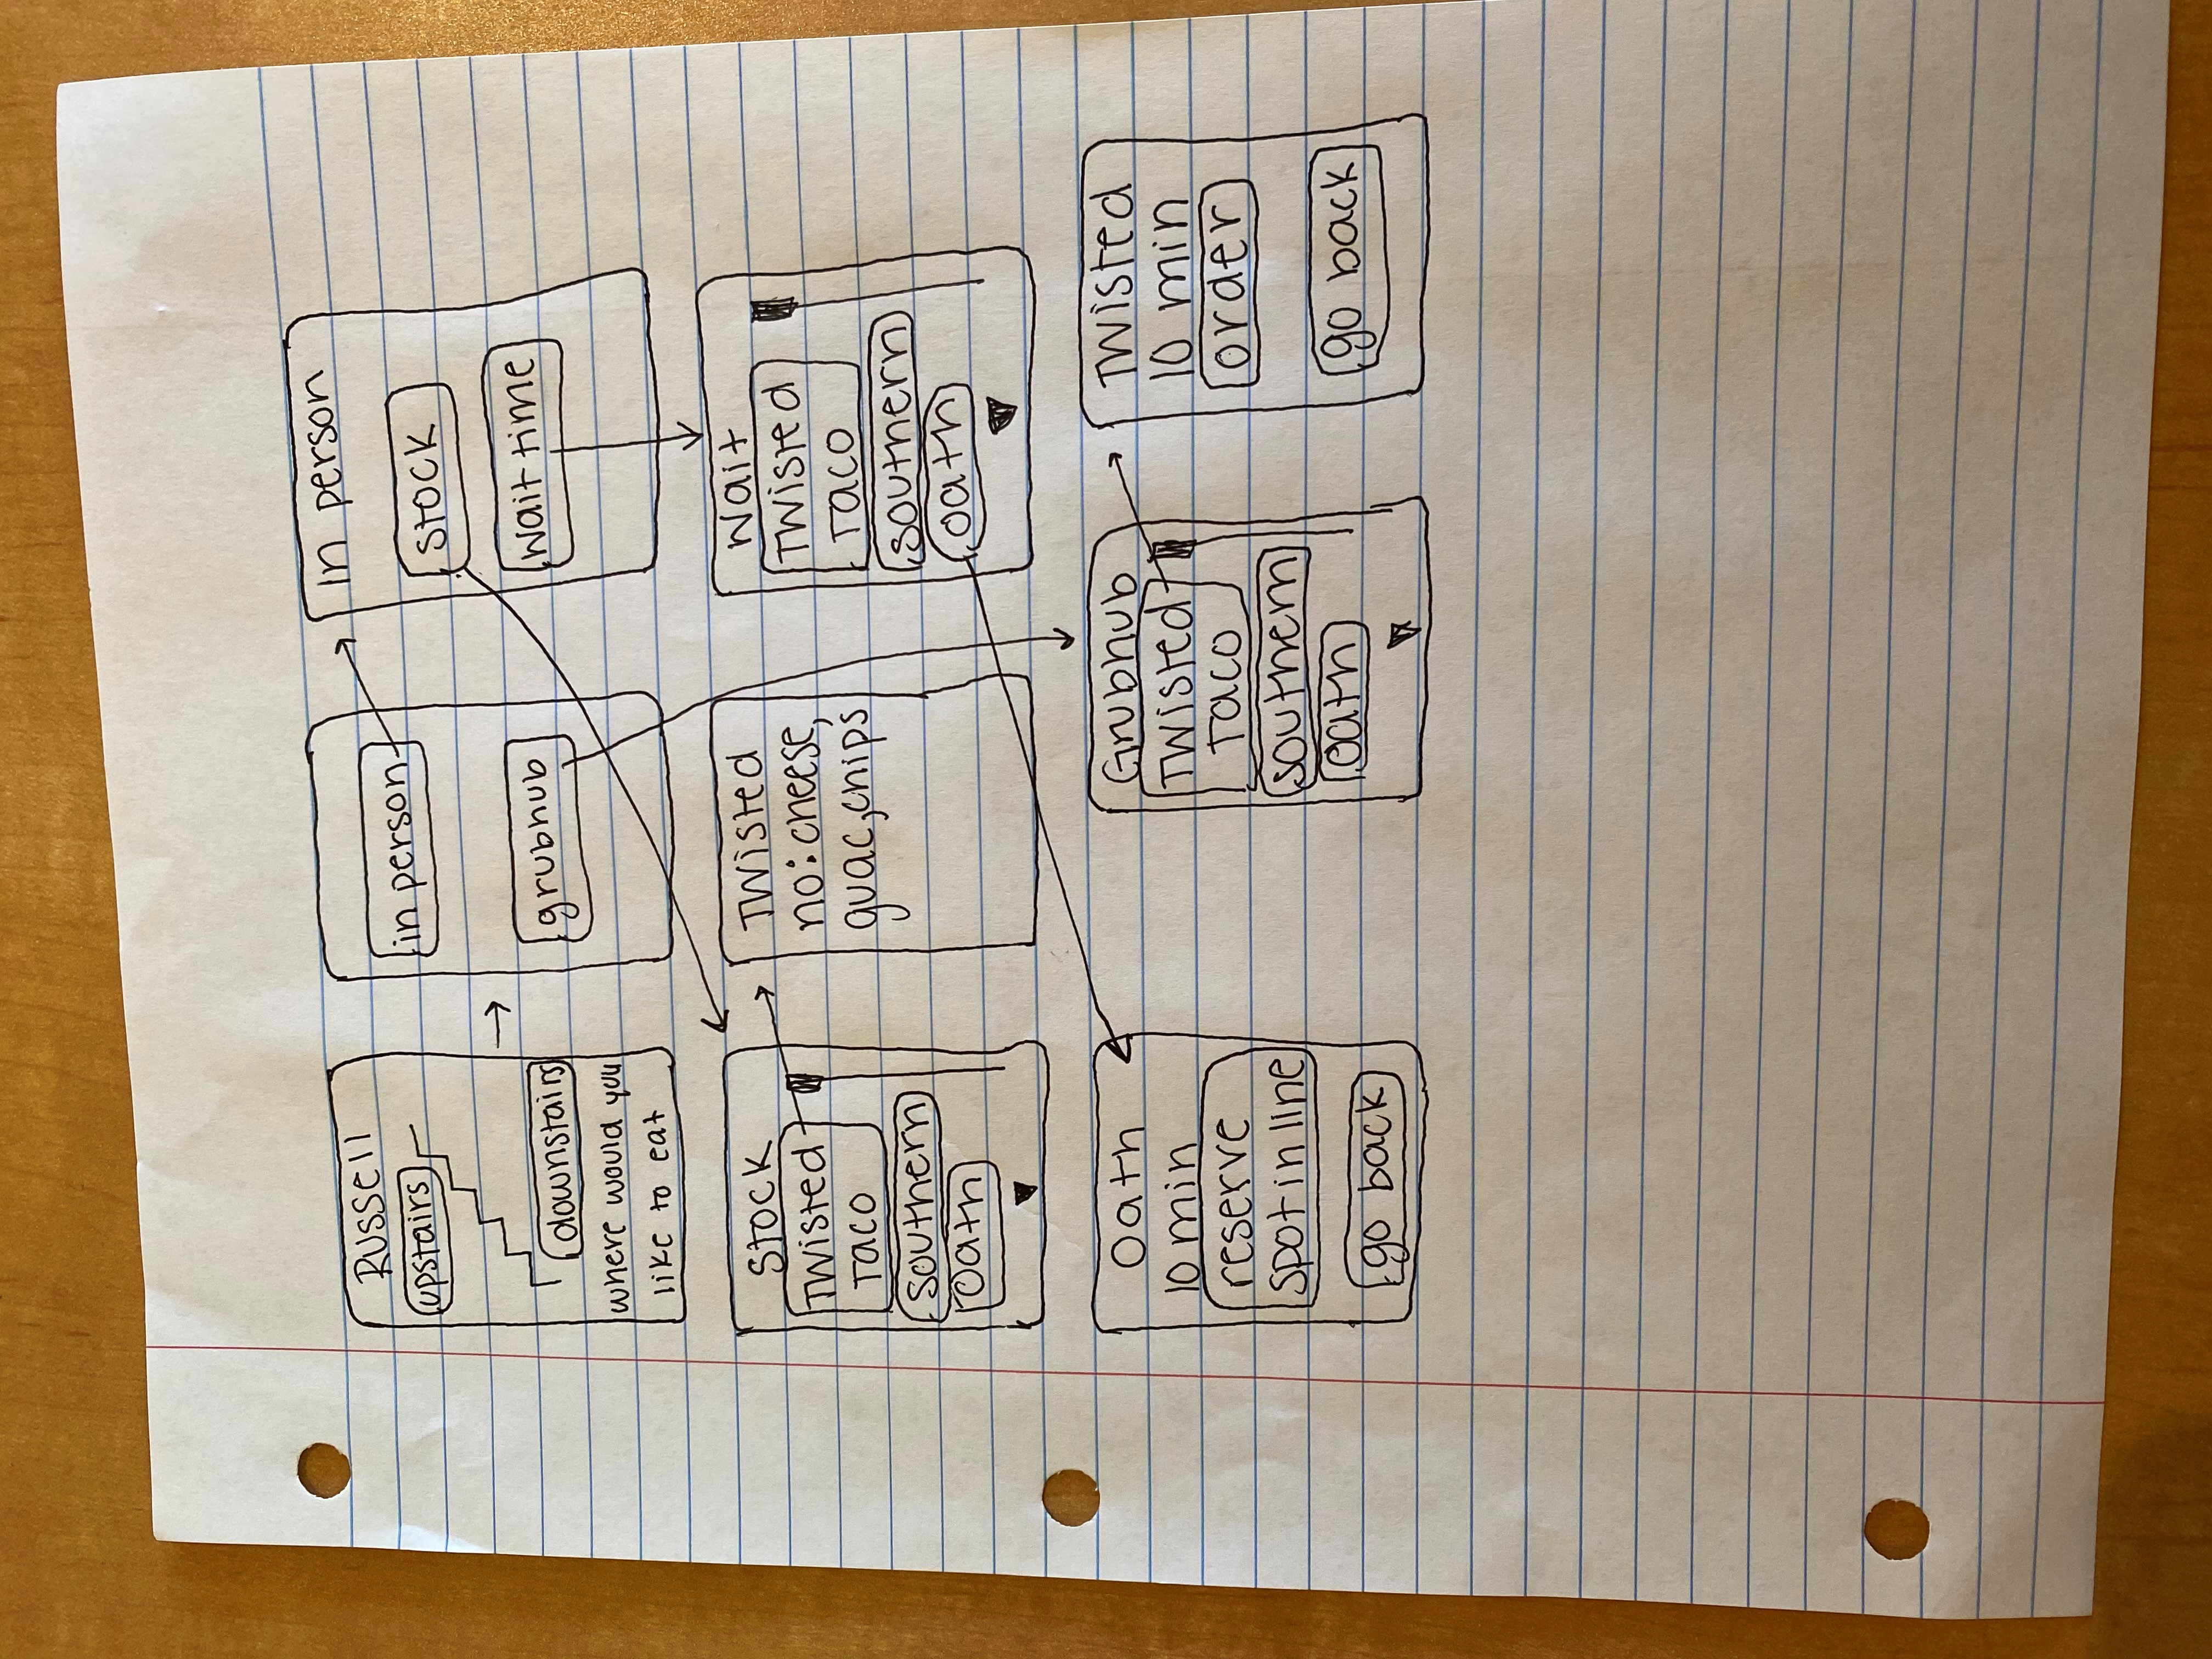 Russell
upstairs
downstairs
where would you
like to eat
in person
grubhub
in person
stock
wait time
Stock
Twisted
Taco
southern
oath
Twisted
no: cheese,
guac, chips
Wait
Twisted
Taco
southern
oath
Oath
10 min
reserve
spot in line
go back
Grubhub
Twisted
Taco
southern
oath
Twisted
10 min
order
go back